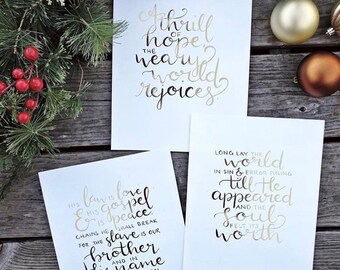 A thrill
OF
hope
THE
weary
world
rejoices
HIS law is love
& HIS gospel
IS peace
CHAINS HE SHALL BREAK
FOR THE slave IS OUR
brother
AND IN
His name
LONG LAY THE
world
IN SIN & ERROR PINING
till He
appeared
AND THE
Soul
FELT ITS
worth